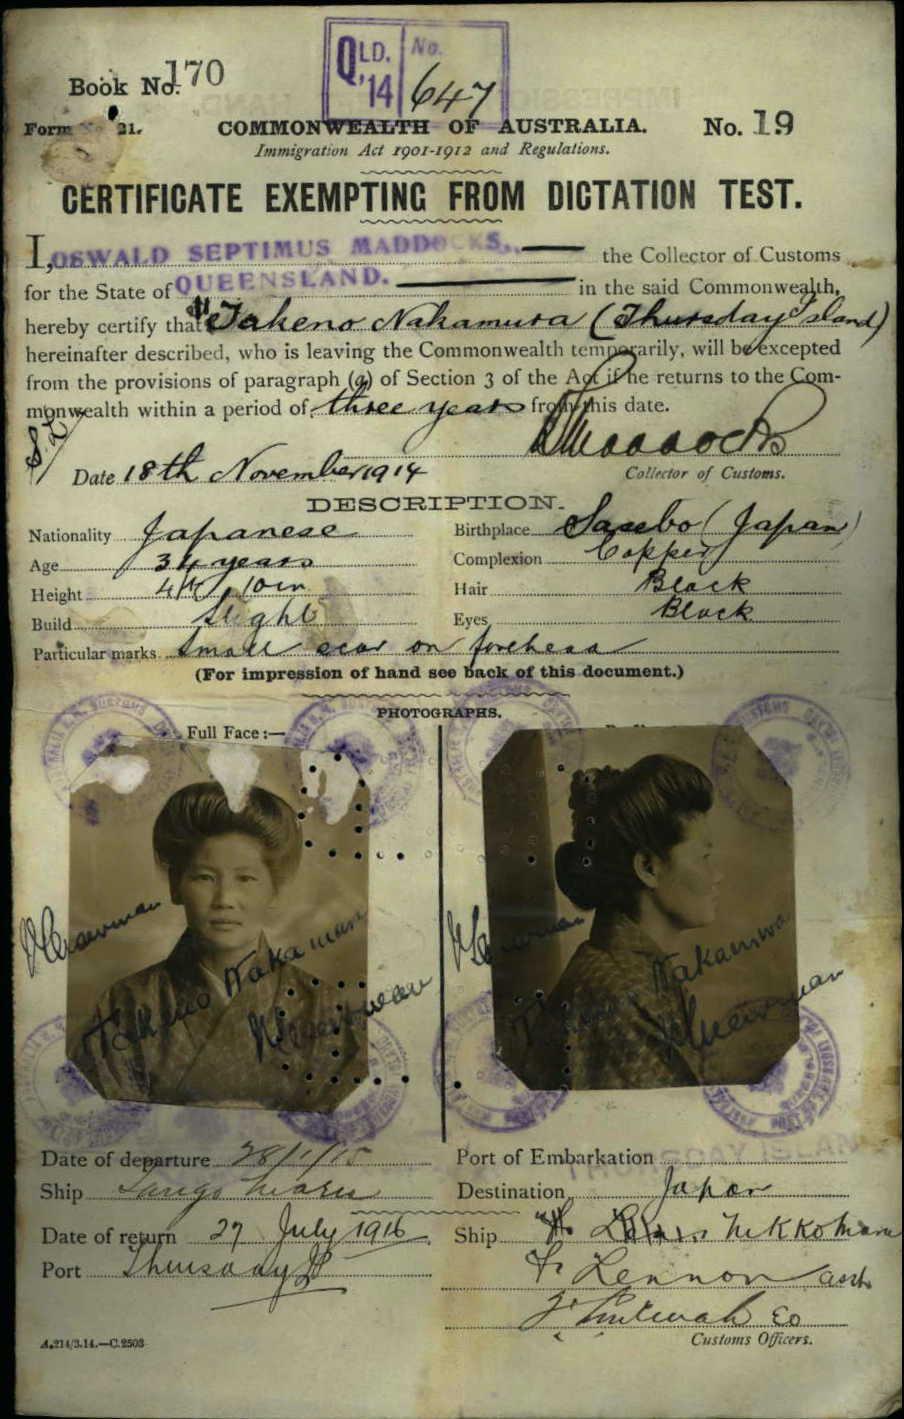 QLD. No.
'14 647
Book No. 170
Form No. 21. COMMONWEALTH OF AUSTRALIA. No. 19
Immigration Act 1901-1912 and Regulations.
CERTIFICATE EXEMPTING FROM DICTATION TEST.
I, OSWALD SEPTIMUS MADDOCKS, the Collector of Customs
for the State of QUEENSLAND. in the said Commonwealth,
hereby certify that Takeno Nakamura (Thursday Island)
hereinafter described, who is leaving the Commonwealth temporarily, will be excepted
from the provisions of paragraph (a) of Section 3 of the Act if he returns to the Com-
monwealth within a period of three years from this date.
Maddocks
Date 18th November 1914 Collector of Customs.
DESCRIPTION.
Nationality Japanese Birthplace Sasebo (Japan)
Age 34 years Complexion Copper
Height 4ft 10in Hair Black
Build Slight Eyes Black
Particular marks Small scar on forehead
(For impression of hand see back of this document.)
PHOTOGRAPHS.
Full Face:—
Takeno Nakamura
Takeno Nakamura
Date of departure 28/1/15 Port of Embarkation
Ship Tango Maru Destination Japan
Date of return 27 July 1916 Ship Nikko Maru
Port Thursday Is F. Lennon asst.
A.214/3.14.—C.2503 Customs Officers.